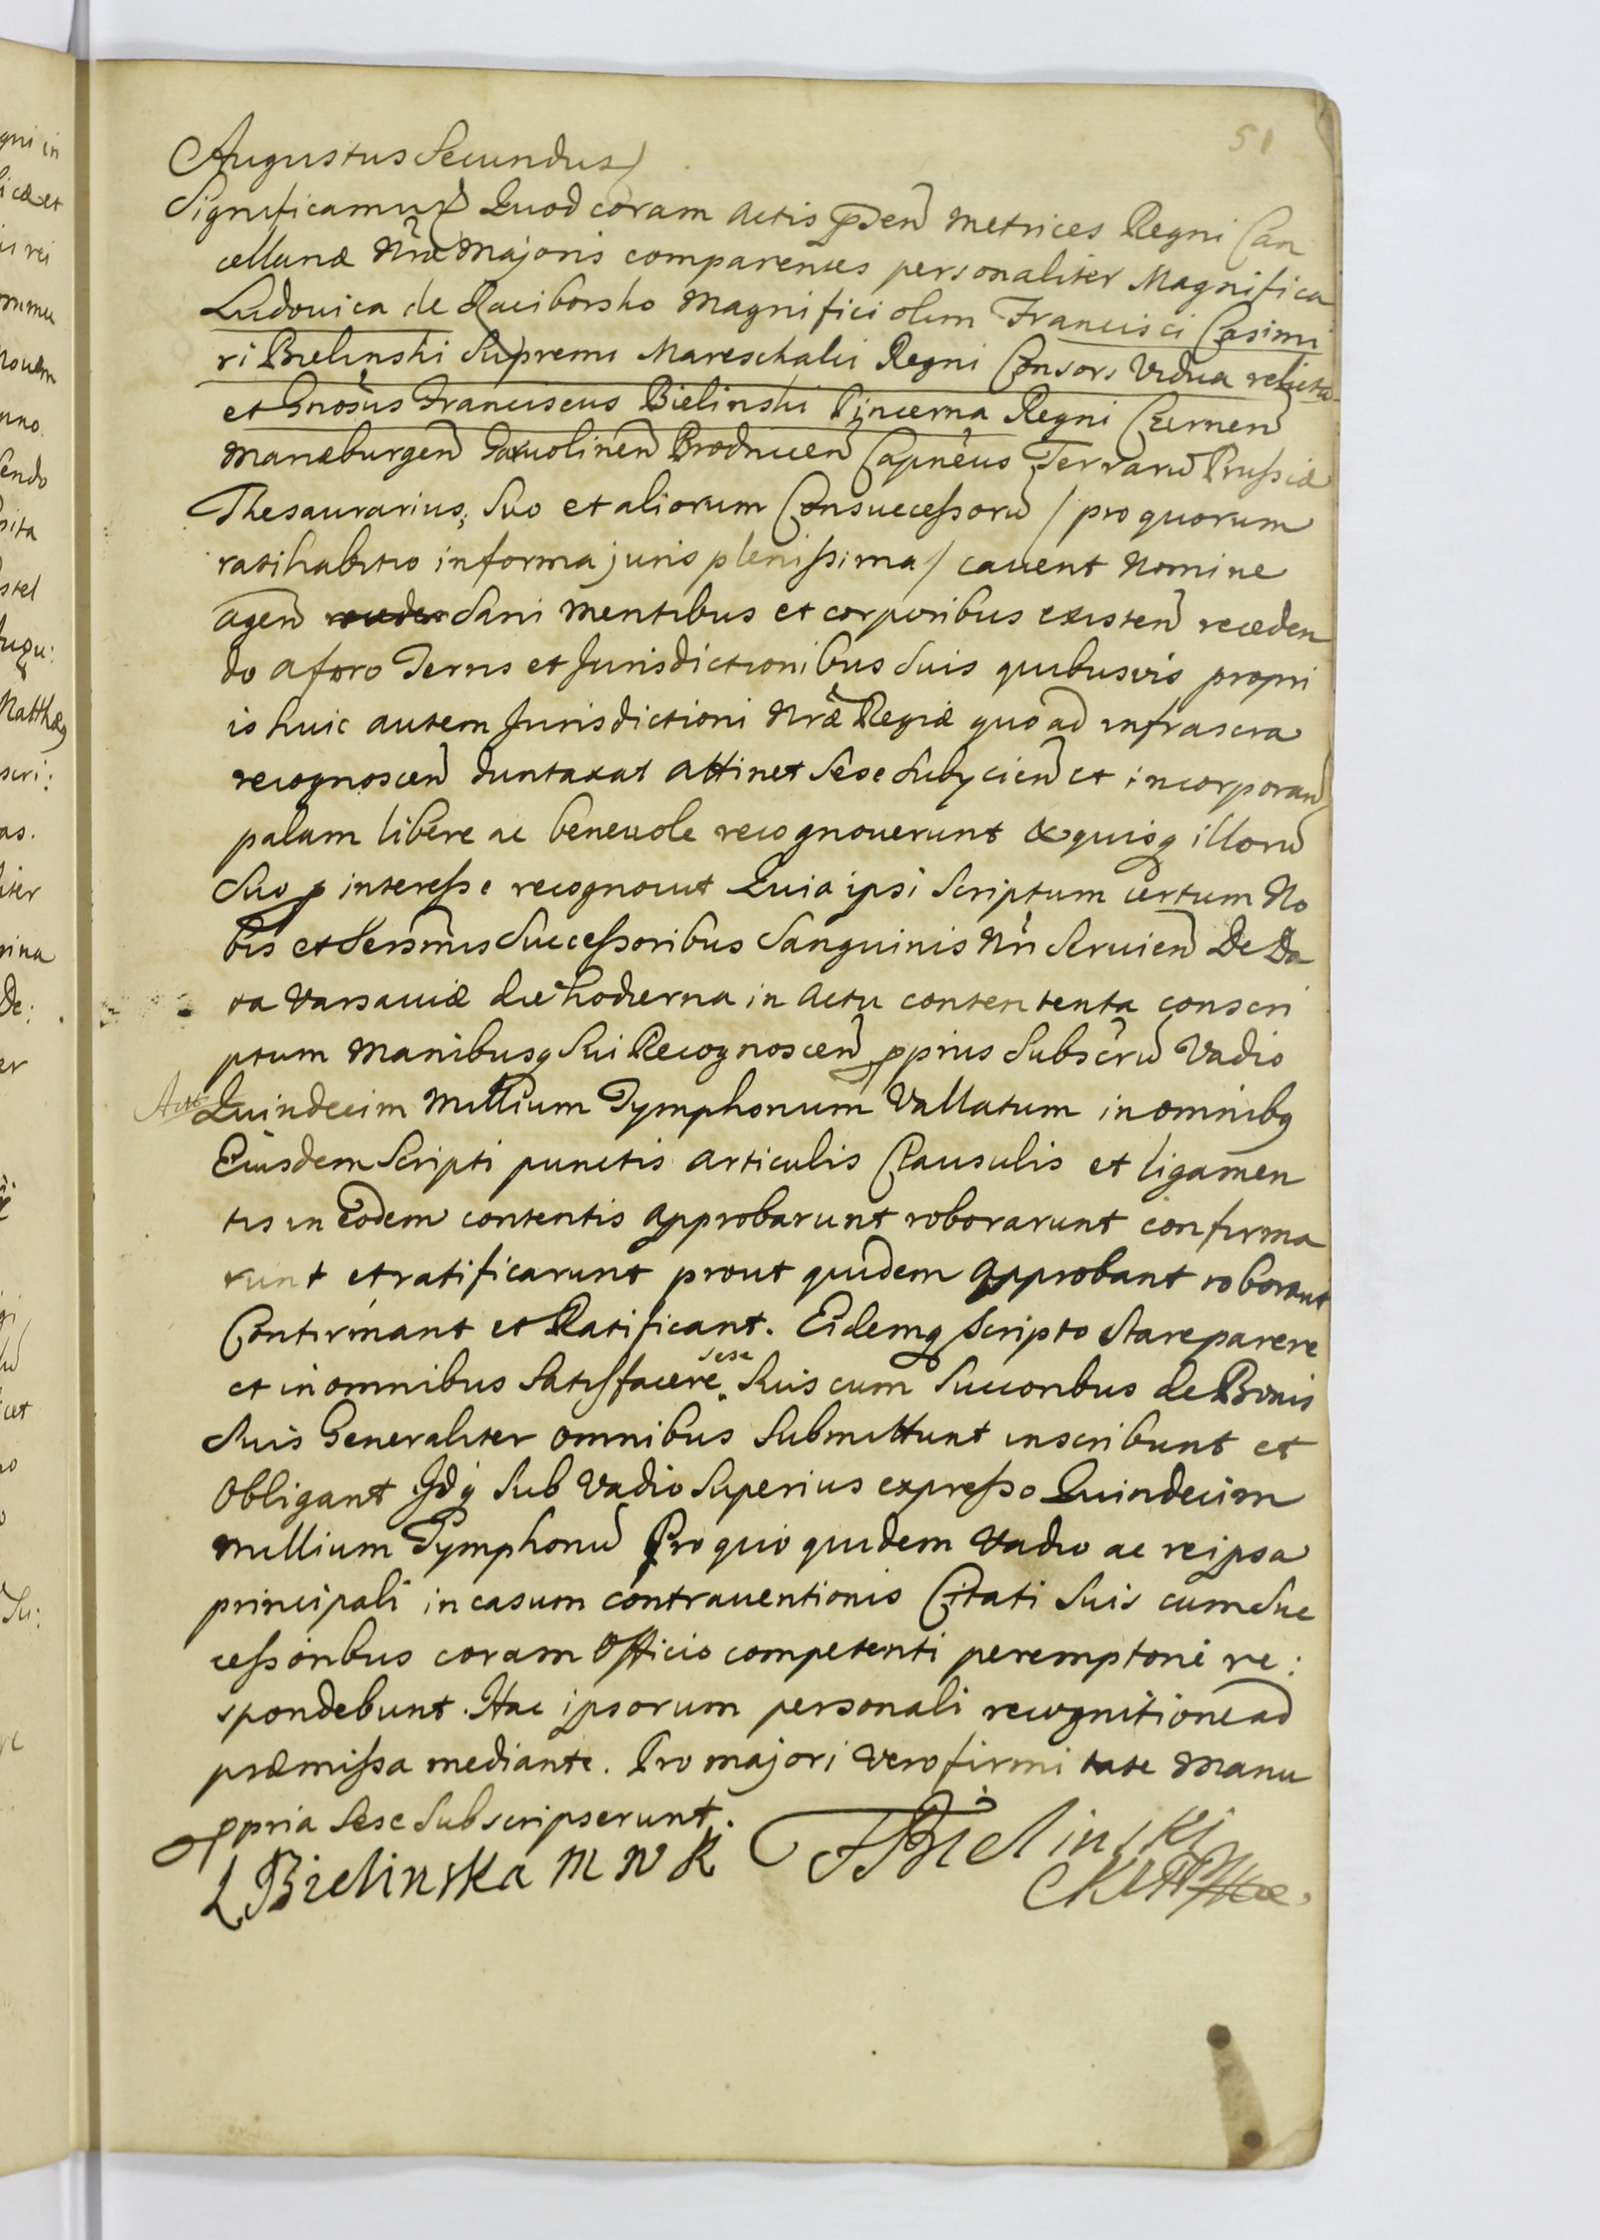 51
Augustus Secundus
Significamus Quod coram actis pñsen Metrices Regni Can
cellariæ Nræ Majoris comparentes personaliter Magnifica
Ludovica de Raciborsko Magnifici olim Francisci Casimi
ri Bielinski Supremi Mareschalci Regni Consors Vidua relicta
et Gnosus Franciscus Bielinski Pincerna Regni Czernen
Marieburgen Garvolinen Brodnicen Capneus Terraru Prussiæ
Thesaurarius, Suo et aliorum Consuccessoru / pro quorum
ratihabitio in forma juris plenissima / cavent Nomine
agen Sani Mentibus et corporibus existen receden
do a foro Terris et Jurisdictionibus Suis quibusvis propri
is huic autem Jurisdictioni Nræ Regiæ quo ad infrascra
recognoscen duntaxat attinet Sese Subjicien et incorporan
palam libere ac benevole recognoverunt & quisq illoru
Suo p interesse recognovit Quia ipsi Scriptum certum No
bis et Serssmis Successoribus Sanguinis Nri Servien De Da
ta Varsaviæ die hodierna in Actu contententa conscri
ptum Manibusq Sui Recognoscen pprijs Subscru Vadio
Actt Quindecim Millium Tymphonum Vallatum in omnibq
Eiusdem Scripti punctis articulis Clausulis et ligamen
tis in Eodem contentis approbarunt roborarunt confirma
runt et ratificarunt prout quidem approbant roborant
Confirmant et Ratificant. Eidemq Scripto Stare parere
et in omnibus Satisfacere sese Suis cum Succoribus de Bonis
Suis Generaliter omnibus Submittunt inscribunt et
obligant Idq Sub Vadio Superius expresso Quindecim
Millium Tymphonu Pro quo quidem Vadio ac re ipsa
principali in casum contraventionis Citati Suis cum Suc
cessoribus coram Officio competenti peremptorie re:
spondebunt. Hac ipsorum personali recognitione ad
præmissa mediante. Pro majori vero firmitate Manu
ppria Sese Subscripserunt.
L Bielinska M W K F Bielinski